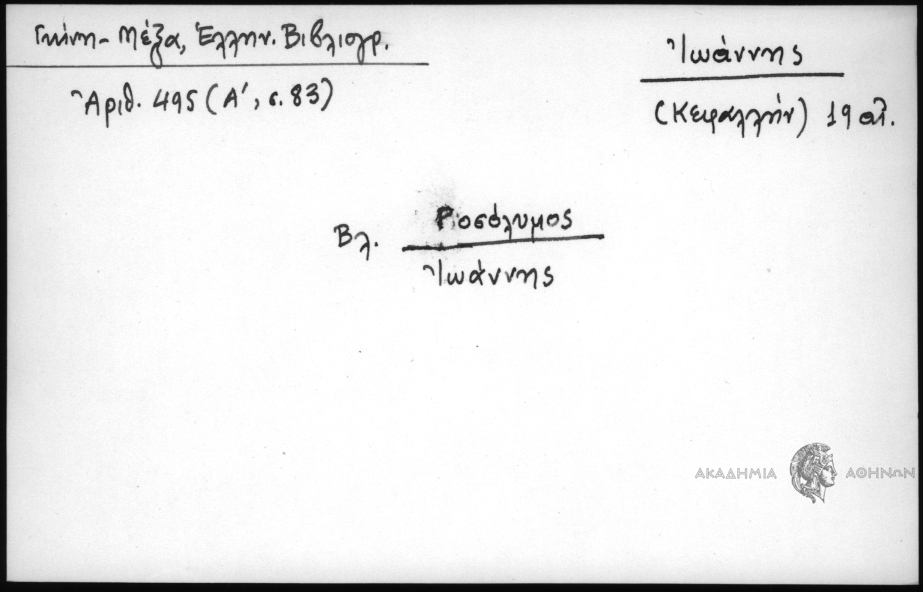 Γκίνη - Μέξα, Ἑλλην. Βιβλιογρ.
Ἀριθ. 495 (Α', σ. 83)
Ἰωάννης
(Κεφαλλήν) 19 αἰ.
Βλ. Ροσόλυμος
Ἰωάννης
ΑΚΑΔΗΜΙΑ ΑΘΗΝΩΝ